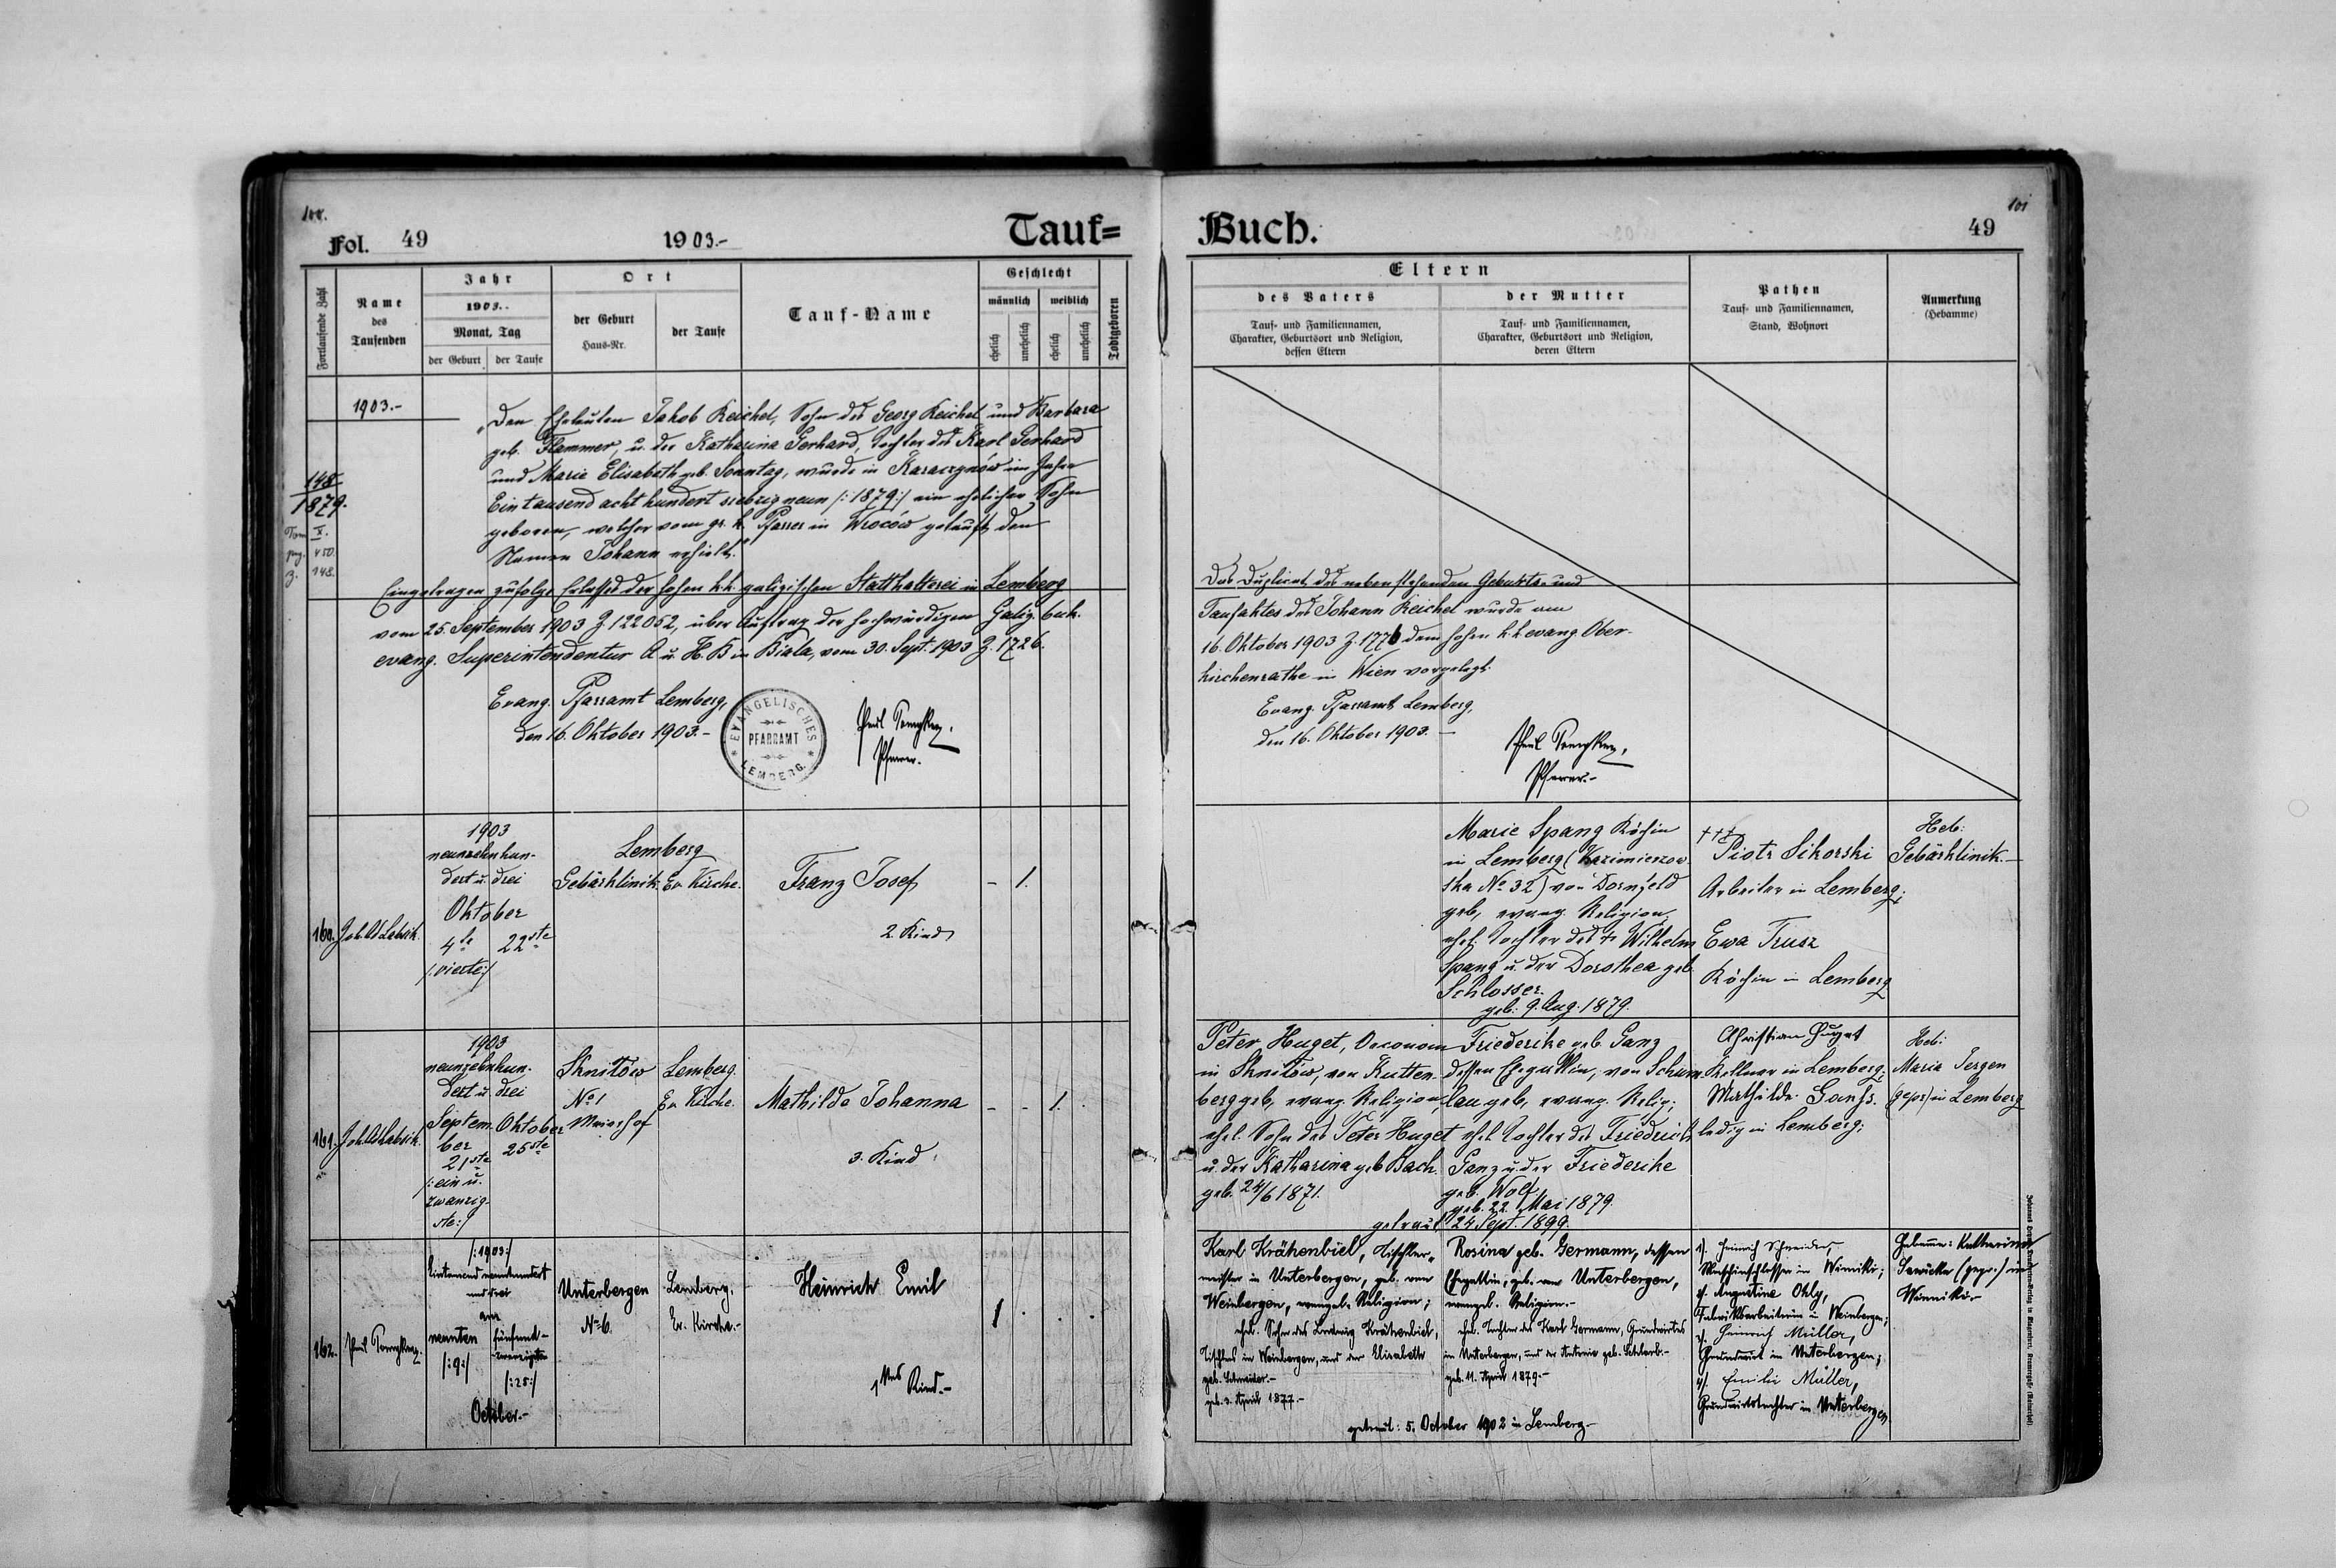 100.
Fol. 49
1903.-
Tauf=
Fortlaufende Zahl
Name
des
Taufenden
Jahr
1903.
Monat, Tag
der Geburt
der Taufe
Ort
der Geburt
Haus-Nr.
der Taufe
Tauf-Name
Geschlecht
männlich
weiblich
ehelich
unehelich
ehelich
unehelich
Todtgeboren
1903.-
148
1879.
Tom X.
pag. 450.
Z. 148.
"Den Eheleuten Jakob Reichel, Sohn des Georg Reichel und Barbara
geb. Flammer, u. der Katharina Gerhard, Tochter des Karl Gerhard
und Marie Elisabeth geb. Sonntag, wurde in Karaczynów im Jahre
Eintausend acht hundert siebzig neun /:1879:/ ein ehelicher Sohn
geboren, welcher vom gr. k. Pfarrer in Wrocow getauft, den
Namen Johann erhielt."
Eingetragen zufolge Erlasses der hohen k.k. galizischen Statthalterei in Lemberg
vom 25. September 1903 Z. 122052, über Auftrag der hochwürdigen Galiz. buk.
evang. Superintendentur A u. H. B in Biala, vom 30. Sept. 1903 Z. 1726.
Evang. Pfarramt Lemberg,
den 16. Oktober 1903.-
EVANGELISCHES
PFARRAMT
LEMBERG.
Paul
Pfarrer.
160.
1903
neunzehnhun-
dert u. drei
Oktober
4te
22ste
/:vierte:/
Lemberg
Gebärklinik.
Ev. Kirche.
Franz Josef
2. Kind
- 1.
161.
1903
neunzehnhun-
dert u. drei
Septem-
ber
21ste
/:ein u.
zwanzig-
ste:/
Oktober
25ste
Sknilów
No 1
Maierhof
Lemberg.
Ev. Kirche.
Mathilde Johanna
3. Kind
- - 1.
162.
Paul
/:1903:/
Eintausend neunhundert
und drei
am
neunten
/:9:/
fünfund-
zwanzigsten
/:25:/
October.-
Unterbergen
No 6.
Lemberg.
Ev. Kirche.-
Heinrich Emil
1tes Kind.-
1
Buch.
101
49
Eltern
des Vaters
Tauf- und Familiennamen,
Charakter, Geburtsort und Religion,
dessen Eltern
der Mutter
Tauf- und Familiennamen,
Charakter, Geburtsort und Religion,
deren Eltern
Pathen
Tauf- und Familiennamen,
Stand, Wohnort
Anmerkung
(Hebamme)
Das Duplicat des nebenstehenden Geburts- und
Taufaktes des Johann Reichel wurde am
16. Oktober 1903 Z. 1776 dem hohen k.k. evang. Ober-
kirchenrathe in Wien vorgelegt.
Evang. Pfarramt Lemberg,
den 16. Oktober 1903.-
Paul
Pfarrer.-
Marie Spang Köchin
in Lemberg (Kazimierzow-
ska No 32) von Dornfeld
geb., evang. Religion,
ehel. Tochter des + Wilhelm
Spang u. der Dorothea geb.
Schlosser.
geb. 9. Aug. 1879.
+++
Piotr Sikorski
Arbeiter in Lemberg;
Ewa Trusz
Köchin in Lemberg
Heb:
Gebärklinik.-
Peter Huget, Oeconom
in Sknilów, von Rutten-
berg geb., evang. Religion,
ehel. Sohn des Peter Huget
u. der Katharina geb. Bach.
geb. 24/6 1871.
Friederike geb. Ganz
dessen Ehegattin, von Schum-
lau geb., evang. Relig.;
ehel. Tochter des Friedrich
Ganz u. der Friederike
geb. Wolf.
geb. 22. Mai 1879.
getraut 24 Sept. 1899.
Christian Huget
Kellner in Lemberg;
Mathilde Ganß.
ledig in Lemberg;
Heb:
Maria Jergen
(gepr.) in Lemberg
Karl Krähenbiel, Tischler-
meister in Unterbergen, geb. von
Weinbergen, evangel. Religion;
ehel. Sohn des Ludwig Krähenbiel,
Tischlers in Weinbergen, und der Elisabeth
geb. Schneider.-
geb. 3. April 1877.-
Rosina geb. Germann, dessen
Ehegattin, geb. von Unterbergen,
evangel. Religion.-
ehel. Tochter des Karl Germann, Grundwirtes
in Unterbergen, und der Antonie geb. Schlarb.-
geb. 11. April 1879.-
getraut: 5. October 1902 in Lemberg.-
1). Heinrich Schneider,
Maschinschlosser in Winniki;
2). Augustine Ohly,
Fabriksarbeiterin in Weinbergen;
3). Heinrich Müller,
Grundwirt in Unterbergen;
4). Emilie Müller,
Grundwirtstochter in Unterbergen.
Hebamme: Katharina
Sawicka (gepr.) in
Winniki.-